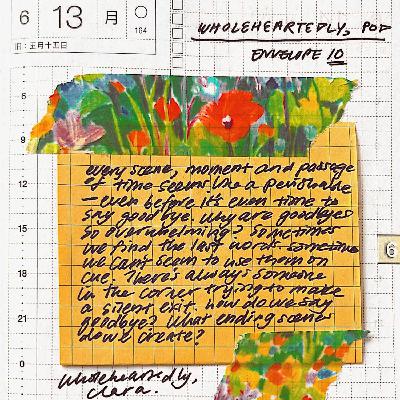 6 13 月
164
旧：五月十五日
WHOLEHEARTEDLY, POD
ENVELOPE 10
6
9
12
15
18
21
0
6
every scene, moment and passage
of time seems like a perishable
— even before it's even time to
say goodbye. Why are goodbyes
so overwhelming? Sometimes
we find the last words sometime
we can't seem to use them on
cue. There's always someone
in the corner trying to make
a silent exit. how do we say
goodbye? What ending scenes
do we create?
Wholeheartedly,
Clara.